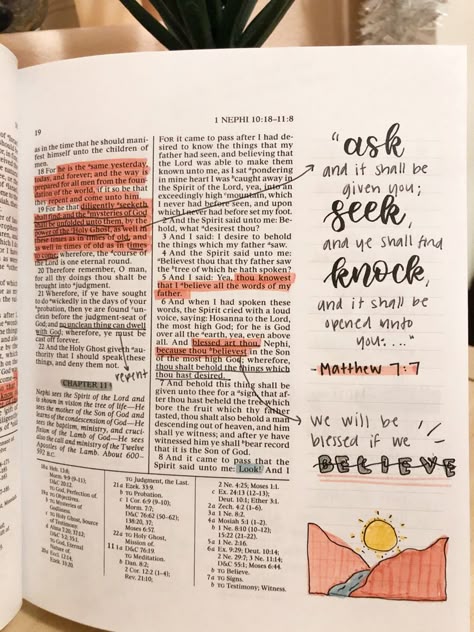 1 NEPHI 10:18–11:8
19
as in the time that he should mani-
fest himself unto the children of
men.
18 For he is the same yesterday,
today, and forever; and the way is
prepared for all men from the foun-
dation of the world, if it so be that
they repent and come unto him.
19 For he that diligently seeketh
shall find; and the mysteries of God
shall be unfolded unto them, by the
power of the Holy Ghost, as well in
these times as in times of old, and as
well in times of old as in times
to come; wherefore, the course of
the Lord is one eternal round.
20 Therefore remember, O man,
for all thy doings thou shalt be
brought into judgment.
21 Wherefore, if ye have sought
to do wickedly in the days of your
probation, then ye are found un-
clean before the judgment-seat of
God; and no unclean thing can dwell
with God; wherefore, ye must be
cast off forever.
22 And the Holy Ghost giveth au-
thority that I should speak these
things, and deny them not.
repent
CHAPTER 11
Nephi sees the Spirit of the Lord and
is shown in vision the tree of life—He
sees the mother of the Son of God and
learns of the condescension of God—He
sees the baptism, ministry, and cruci-
fixion of the Lamb of God—He sees
also the call and ministry of the Twelve
Apostles of the Lamb. About 600–
592 B.C.
FOR it came to pass after I had de-
sired to know the things that my
father had seen, and believing that
the Lord was able to make them
known unto me, as I sat pondering
in mine heart I was caught away in
the Spirit of the Lord, yea, into an
exceedingly high mountain, which
I never had before seen, and upon
which I never had before set my foot.
2 And the Spirit said unto me: Be-
hold, what desirest thou?
3 And I said: I desire to behold
the things which my father saw.
4 And the Spirit said unto me:
Believest thou that thy father saw
the tree of which he hath spoken?
5 And I said: Yea, thou knowest
that I believe all the words of my
father.
6 And when I had spoken these
words, the Spirit cried with a loud
voice, saying: Hosanna to the Lord,
the most high God; for he is God
over all the earth, yea, even above
all. And blessed art thou, Nephi,
because thou believest in the Son
of the most high God; wherefore,
thou shalt behold the things which
thou hast desired.
7 And behold this thing shall be
given unto thee for a sign, that af-
ter thou hast beheld the tree which
bore the fruit which thy father
tasted, thou shalt also behold a man
descending out of heaven, and him
shall ye witness; and after ye have
witnessed him ye shall bear record
that it is the Son of God.
8 And it came to pass that the
Spirit said unto me: Look! And I
"ask
and it shall be
given you;
SEEK,
and ye shall find
KNOCK,
and it shall be
opened unto
you: ...."
Matthew 7:7
we will be
blessed if we
BELIEVE
TG Judgment, the Last.
21a Ezek. 33:9.
b TG Probation.
c 1 Cor. 6:9 (9–10);
Morm. 7:7;
D&C 76:62 (50–62);
138:20, 37;
Moses 6:57.
22a TG Holy Ghost,
Mission of.
11 1a D&C 76:19.
TG Meditation.
b Dan. 8:2;
2 Cor. 12:2 (1–4);
Rev. 21:10;
2 Ne. 4:25; Moses 1:1.
c Ex. 24:13 (12–13);
Deut. 10:1; Ether 3:1.
2a Zech. 4:2 (1–6).
3a 1 Ne. 8:2.
4a Mosiah 5:1 (1–2).
b 1 Ne. 8:10 (10–12);
15:22 (21–22).
5a 1 Ne. 2:16.
6a Ex. 9:29; Deut. 10:14;
2 Ne. 29:7; 3 Ne. 11:14;
D&C 55:1; Moses 6:44.
b TG Believe.
7a TG Signs.
b TG Testimony; Witness.